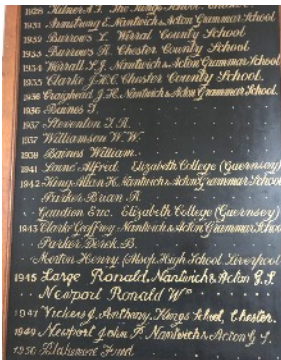 1928 Kilner A.S. The Kings School, Chester
1931 Armstrong E. Nantwich & Acton Grammar School
1932 Burrows L. Wirral County School
1933 Burrows R. Chester County School
1934 Worrall S.J. Nantwich & Acton Grammar School
1935 Clarke J.H.C. Chester County School.
1936 Craighead J.H. Nantwich & Acton Grammar School
1936 Baines J.
1937 Steventon J.A.
1937 Williamson W.W.
1938 Baines William.
1941 Alfred Elizabeth College (Guernsey)
1942 King Allan H. Nantwich & Acton Grammar School
Parker Brian R.
Gaudion Eric. Elizabeth College (Guernsey)
1943 Clarke Geoffrey Nantwich & Acton Grammar School
Parker Derek B.
Morton Henry. (Alsop High School Liverpool
1945 Large Ronald, Nantwich & Acton G.S.
Newport Ronald Wm
1947 Vickers J. Anthony. Kings School, Chester.
1949 Newport John P. Nantwich & Acton G.S.
1950 Blakemore Fund